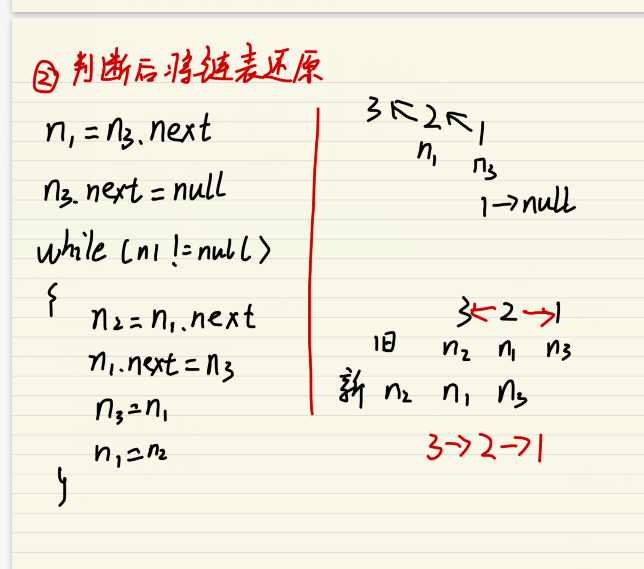 ② 判断后将链表还原
n₁ = n₃.next
n₃.next = null
while (n1 != null)
{
n₂ = n₁.next
n₁.next = n₃
n₃ = n₁
n₁ = n₂
}
3 ↖ 2 ↖ 1
n₁ n₃
1 → null
3 ← 2 → 1
旧 n₂ n₁ n₃
新 n₂ n₁ n₃
3 → 2 → 1